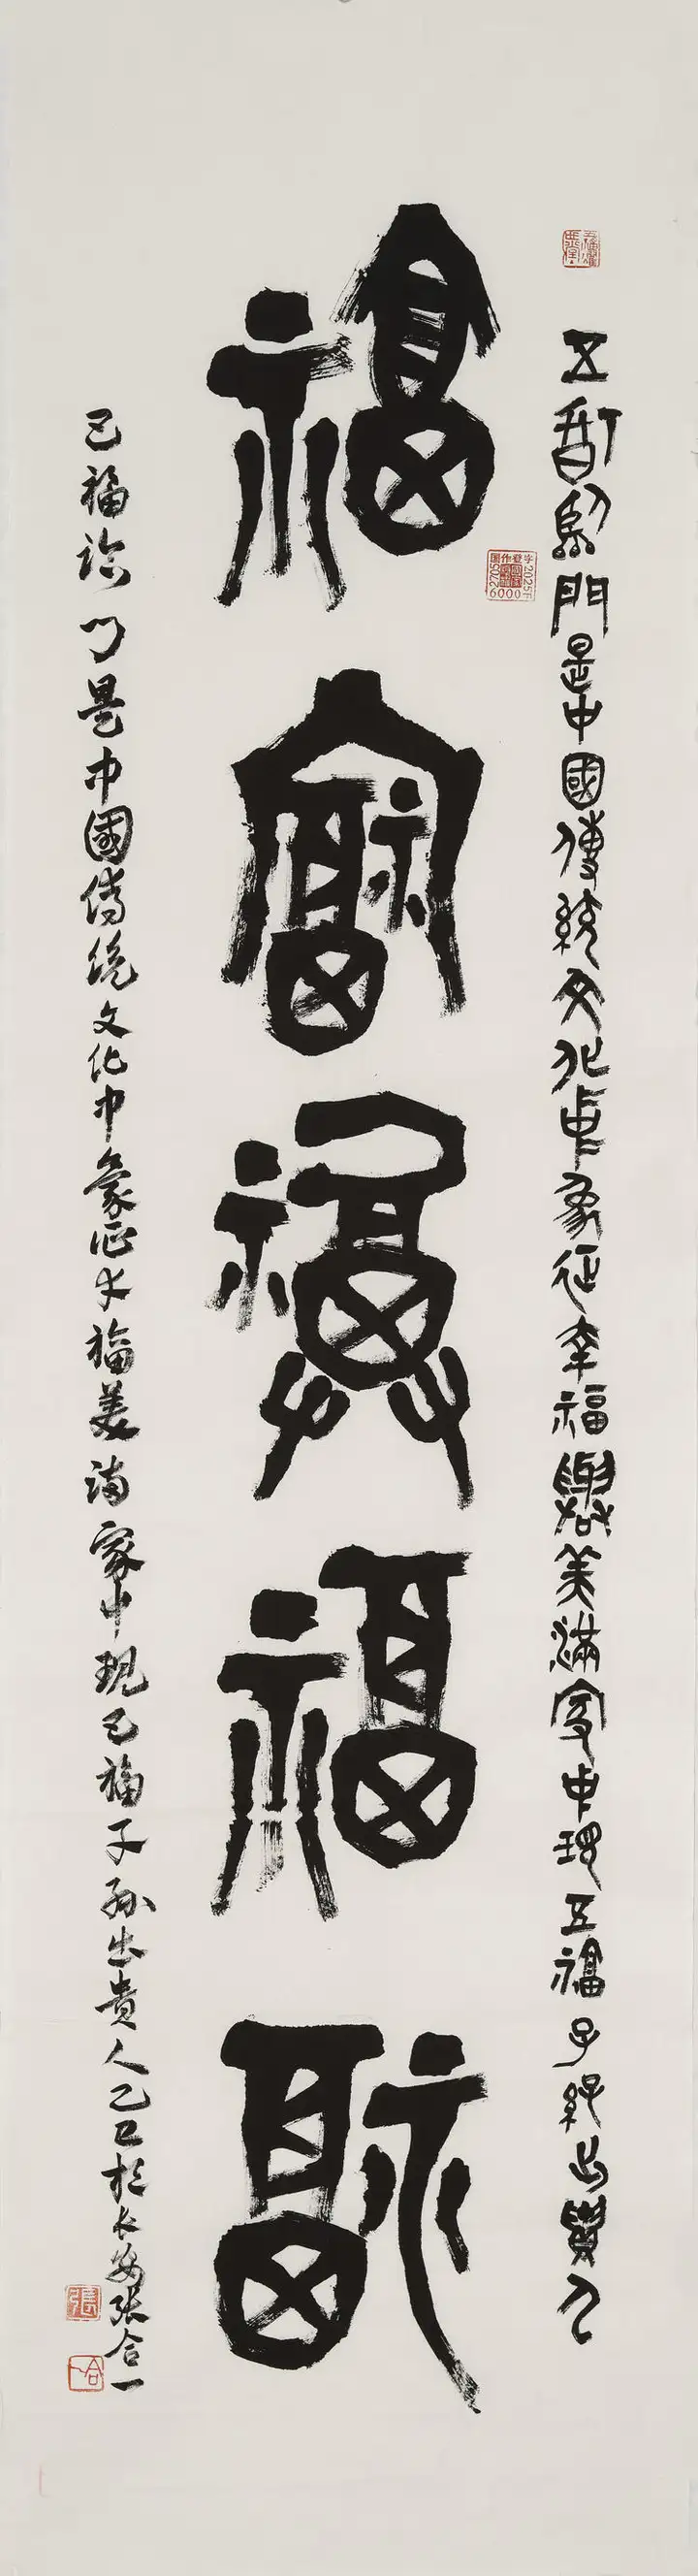 五福临門是中國傳統文化中象征幸福與美滿家中現五福子孫出貴人
福
福
福
福
福
五福临门是中國传统文化中象征大福美满家中現五福子孙出貴人乙巳於长安張合一